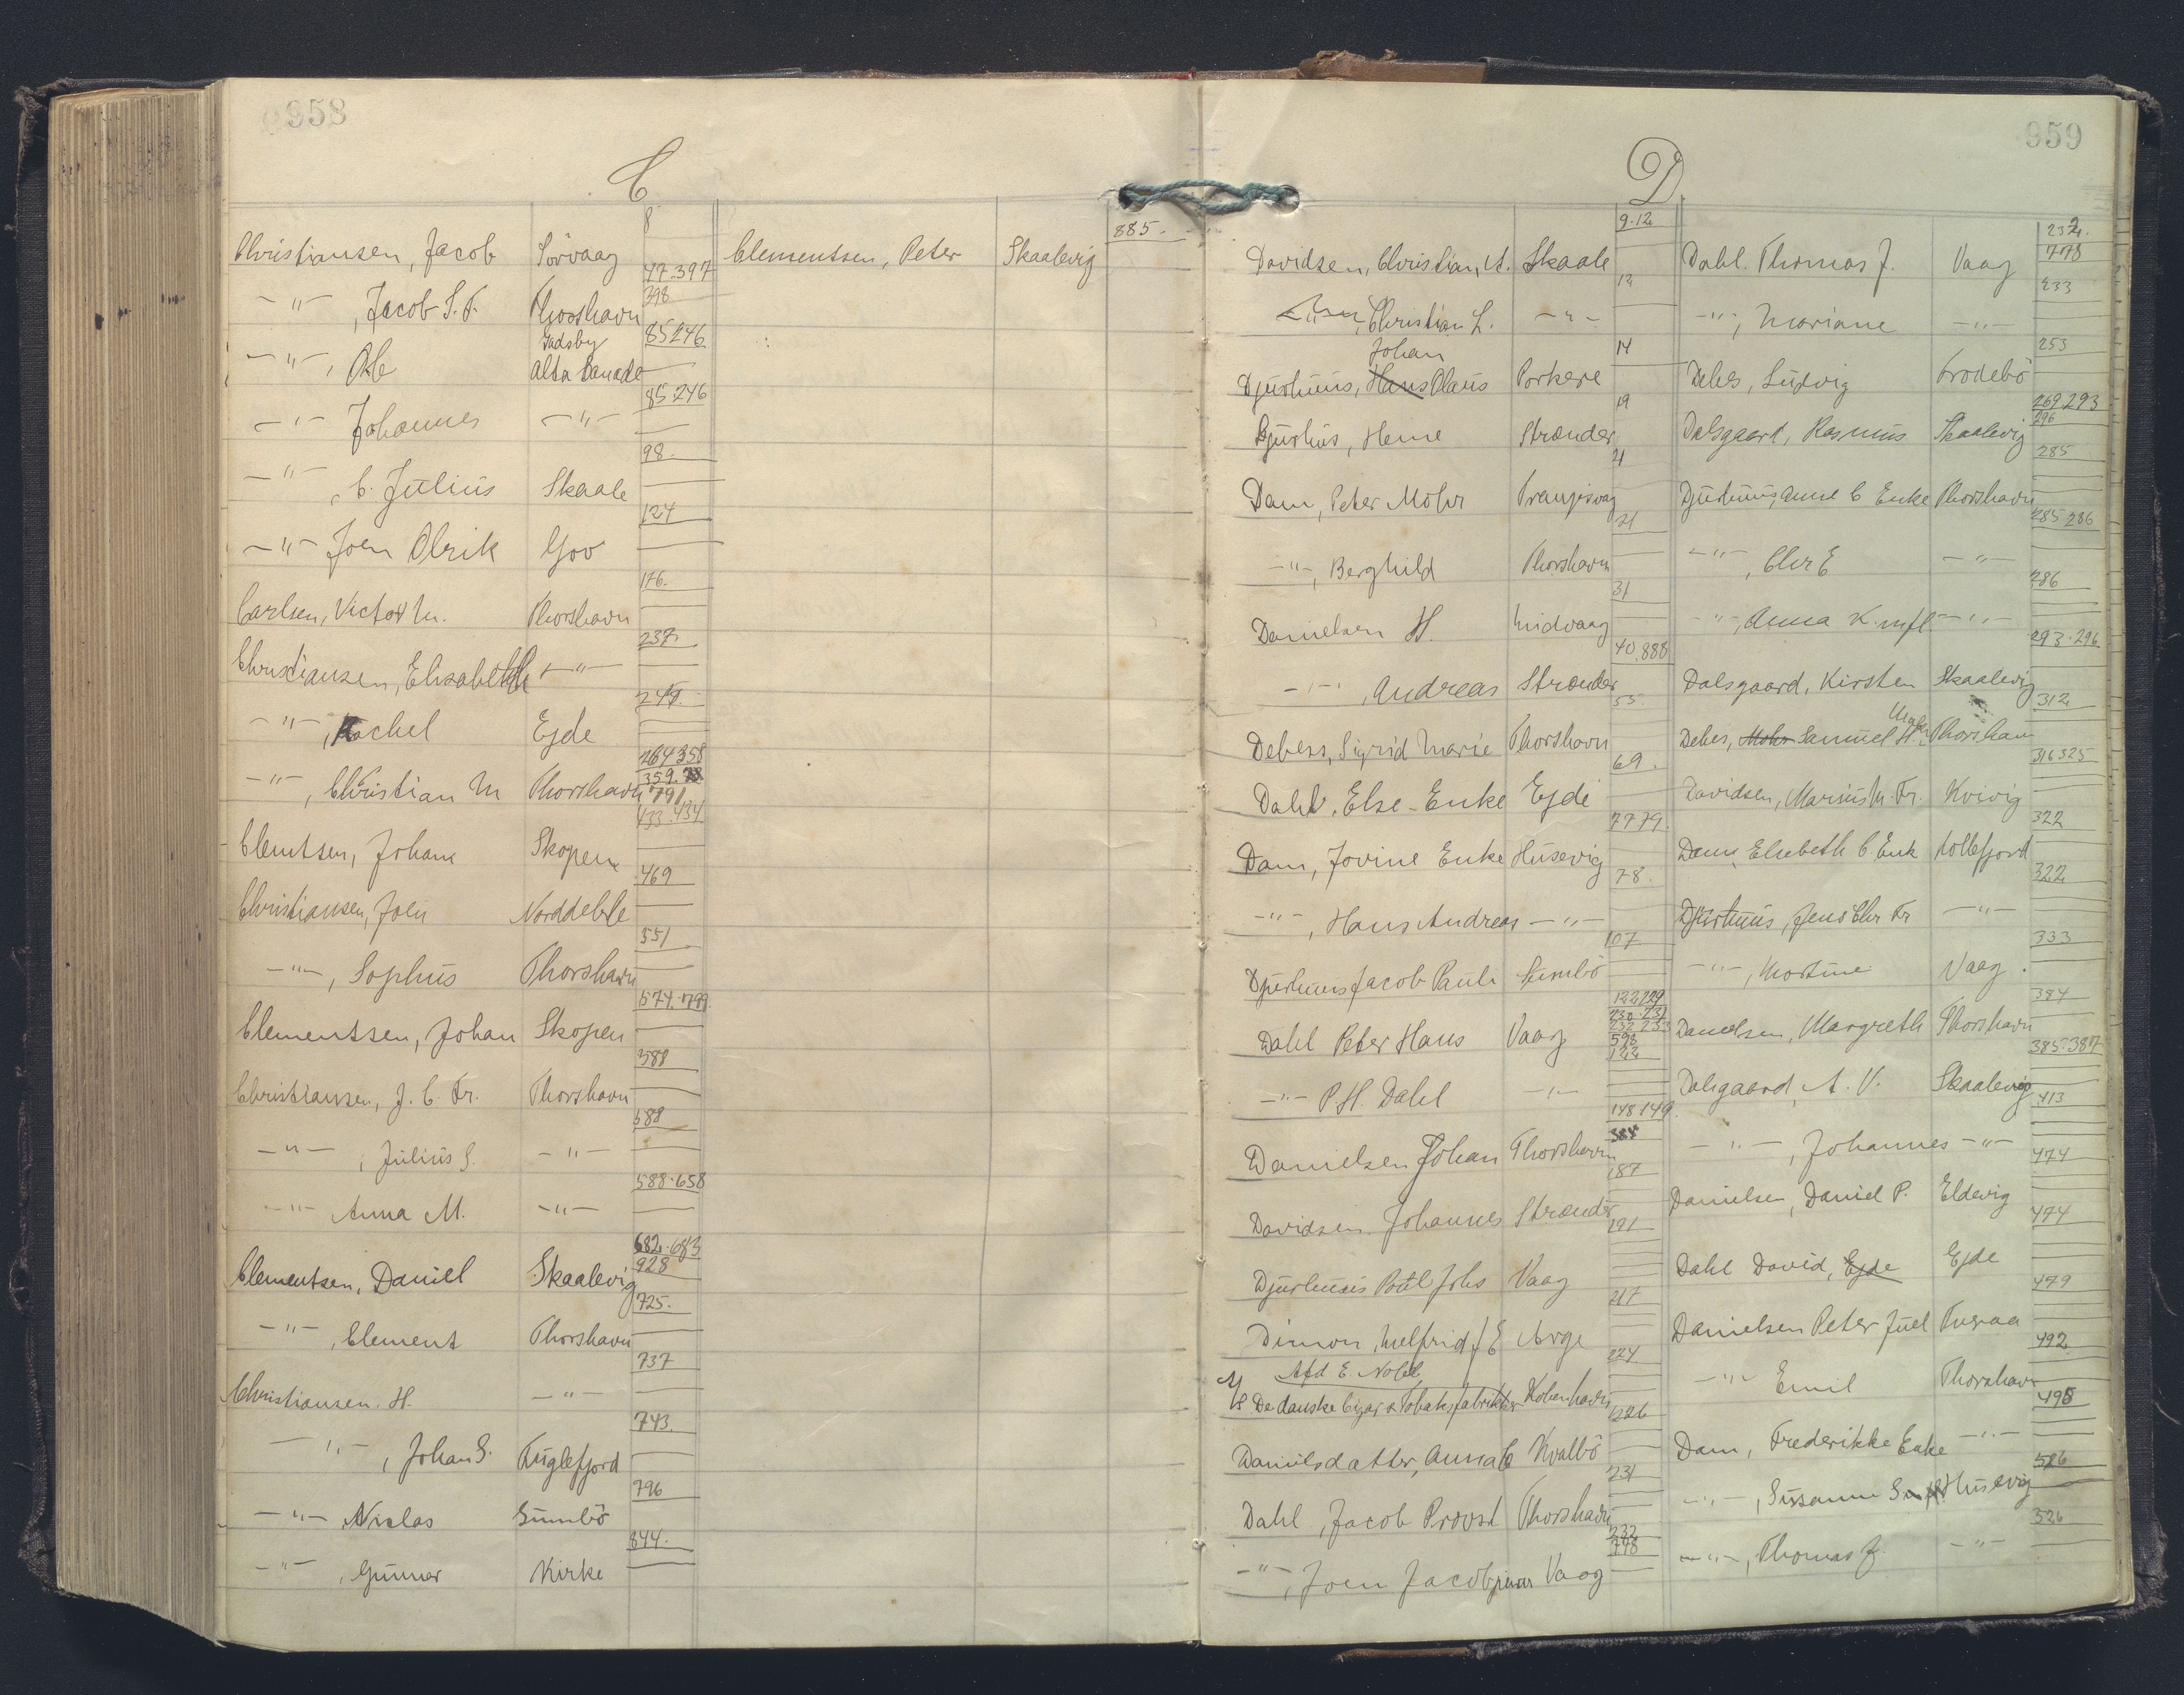 958
C
8
Christiansen, Jacob Sörvaag
47.397
398
-"- , Jacob S. F. Thorshavn
85246
-"- , Ole Gadsby Alta Canada
85.246
-"- Johannes -"-
98.
-"- , C. Julius Skaale
124
-"- Joen Olrik Gov
176.
Carlsen, Victor M. Thorshavn
237.
Christiansen, Elisabeth -"-
-"- , Rachel Ejde
264 358
359.
-"- , Christian M Thorshavn
791
433.434
Clemtsen, Johan Skopen
469
Christiansen, Joen Norddeble
551
-"- , Sophus Thorshavn
574.799
Clementsen, Johan Skopen
588
Christiansen, J. C. Fr. Thorshavn
588
-"- , Julius S. -"-
588.658
-"- Anna M. -"-
682.683
928
Clementsen, Daniel Skaalevig
725.
-"- , Clement Thorshavn
737
Christiansen. H. -"-
743.
-"- , Johan S. Fuglefjord
796
-"- , Niclas Sumbö
844.
-"- , Gunnar Kirke
885.
Clementsen, Peter Skaalevig
959
D
9.12
Davidsen, Christian, A. Skaale
12
-"- , Christian L. -"-
14
Johan
Djurhuus, Hans Olaus Porkere
19
Djurhus, Heine Strænder
21
Dam, Peter Mohr Trangisvag
21
-"- , Berghild Thorshavn
31
Danielsen H. Midvaag
40.888
-"- , Andreas Strænder
55
Debess, Sigrid Marie Thorshavn
69.
Dahl, Else - Enke Ejde
77 79.
Dam, Jovine Enke Husevig
78.
-"- , Hans Andreas -"-
107
Djurhuus Jacob Pauli Sumbö
122 229
230.231
232 233
598
122
Dahl Peter Hans Vaag
-"- P. H. Dahl -"-
148 149.
384
Danielsen Johan Thorshavn
187
Davidsen Johannes Strænder
191
Djurhuus Poul Johs Vaag
217
Dimon, Melfrid f E Arge
224.
Afd E. Nobel
De danske Cigar & Tobaksfabrikker Kobenhavn
226
Danielsdatter, Anna C Kvalbö
231
Dahl, Jacob Provst Thorshavn
232
778
-"- , Joen Jacob Vaag
232.
778
Dahl. Thomas J. Vaag
233
-"- , Mariane -"-
253
Debes, Ludvig Frodebö
269 293
296
Dalsgaard, Rasmus Skaalevig
285
Djurhuus, Anne C Enke Thorshavn
285 286
-"- , Chr E -"-
286
-"- , Anna K. mfl. -"-
293.296
Dalsgaard, Kirsten Skaalevig
312
Debes, Mohr Samuel H. Thorshavn
316 325
Davidsen, Marius M. Fr. Kvivig
322
Dam, Elsebeth C. Enk Kollefjord
322
Djurhuus, Jens Chr Fr -"-
333
-"- , Mortine Vaag.
384
Danielsen, Margreth Thorshavn
385.387
Dalsgaard, A. V. Skaalevig
413
-"- , Johannes -"-
474
Danielsen, Daniel P. Eldevig
474
Dahl David, Ejde Ejde
479
Danielsen Peter Juel Tveraa
492
-"- Emil Thorshavn
498
Dam, Frederikke Enke -"-
526
-"- , Susanne S Husevig
526
-"- , Thomas J. -"-